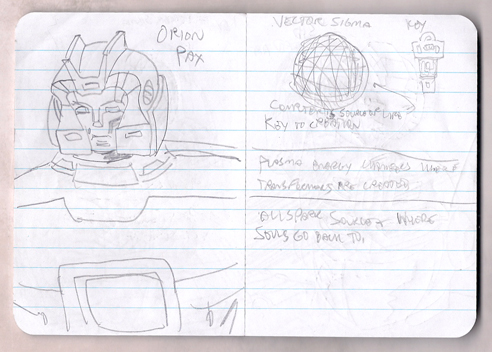 ORION
PAX
VECTOR SIGMA
KEY
SOURCE OF LIFE
KEY TO CREATION
PLASMA ENERGY WHERE
TRANSFORMERS ARE CREATED
ALLSPARK WHERE
SOULS GO BACK TO,